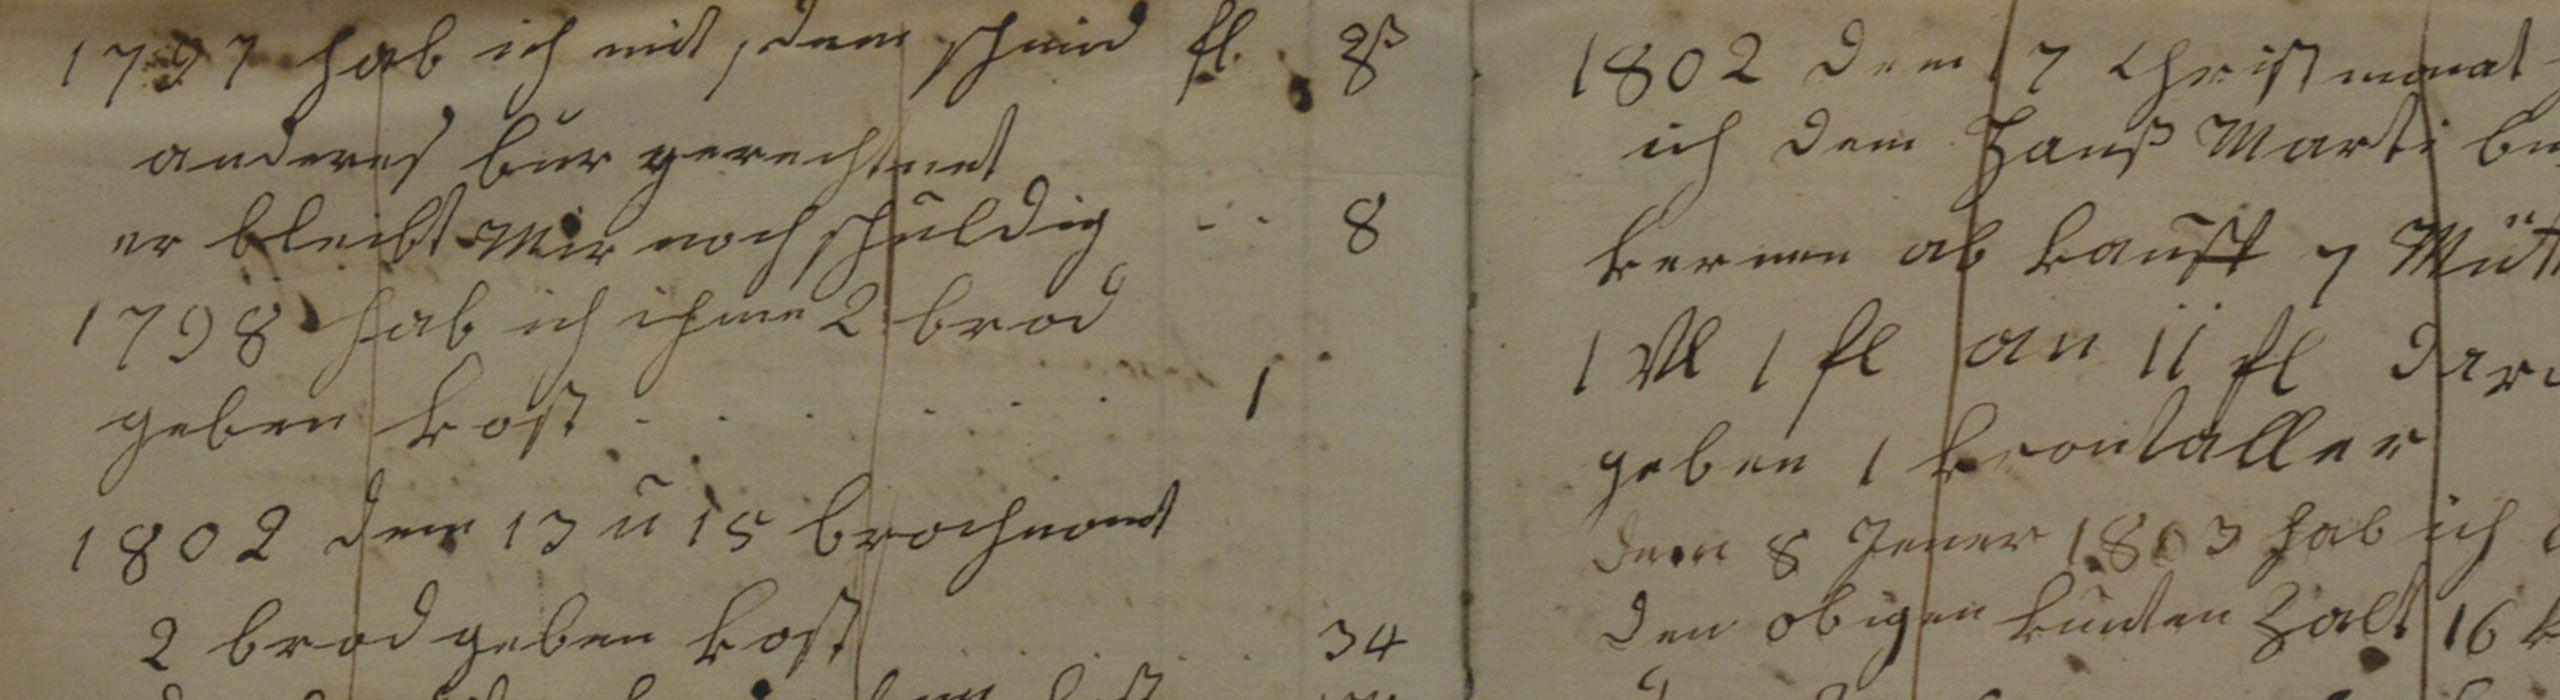 1797 hab ich mit dem schmid fl. ß
anderes bur gerechnet
er bleibt Mir noch schuldig 8
1798 hab ich ihme 2 brod
geben kost 1
1802 dem 13 u 15 brachmont
2 brod geben kost 34
1802 dem 17 Christmonat
ich dem Hanß Marti
kernen ab kaufft 7 Mütt
1 Vtl 1 fl an 11 fl
geben 1 krontaller
dem 8 Jener 1803 hab ich
den obigen kunten Zalt 16